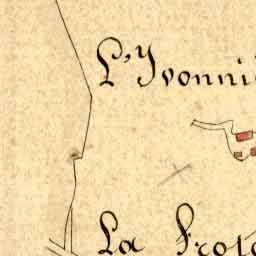 L'Yvonni
La Frot